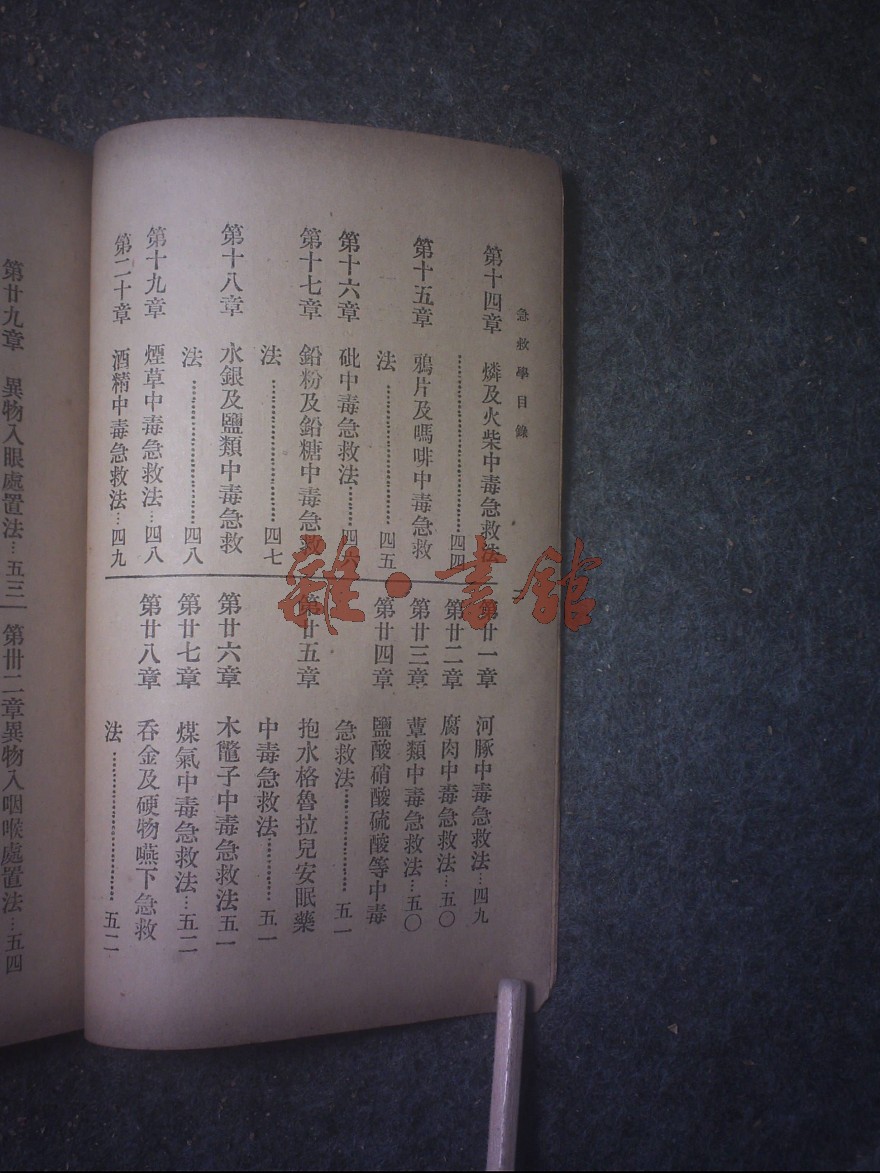 急救學目錄
第十四章 燐及火柴中毒急救法
……………………四四
第十五章 鴉片及嗎啡中毒急救
法……………………四五
第十六章 砒中毒急救法……四六
第十七章 鉛粉及鉛糖中毒急救
法……………………四七
第十八章 水銀及鹽類中毒急救
法……………………四八
第十九章 煙草中毒急救法…四八
第二十章 酒精中毒急救法…四九
第廿一章 河豚中毒急救法…四九
第廿二章 腐肉中毒急救法…五〇
第廿三章 蕈類中毒急救法…五〇
第廿四章 鹽酸硝酸硫酸等中毒
急救法………………五一
第廿五章 抱水格魯拉兒安眠藥
中毒急救法…………五一
第廿六章 木鼈子中毒急救法五一
第廿七章 煤氣中毒急救法…五二
第廿八章 吞金及硬物嚥下急救
法……………………五二
第廿九章 異物入眼處置法…五三
第卅二章異物入咽喉處置法…五四
雜·書館